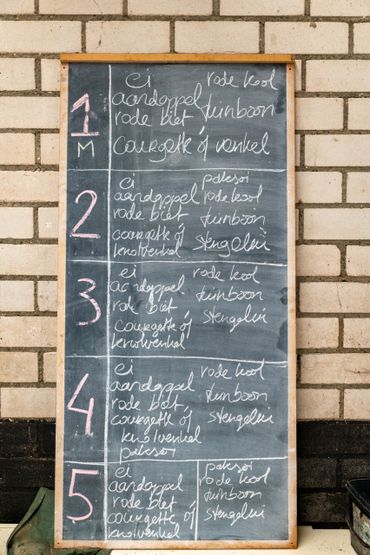 1
M
ei rode kool
aardappel
rode biet tuinboon
courgette óf venkel
2
ei paksoi
aardappel rode kool
rode biet tuinboon
courgette óf stengelui
knolvenkel
3
ei rode kool
aardappel
rode biet tuinboon
courgette óf stengelui
knolvenkel
4
ei rode kool
aardappel
rode biet tuinboon
courgette óf stengelui
knolvenkel
paksoi
5
ei paksoi
aardappel rode kool
rode biet tuinboon
courgette óf stengelui
knolvenkel